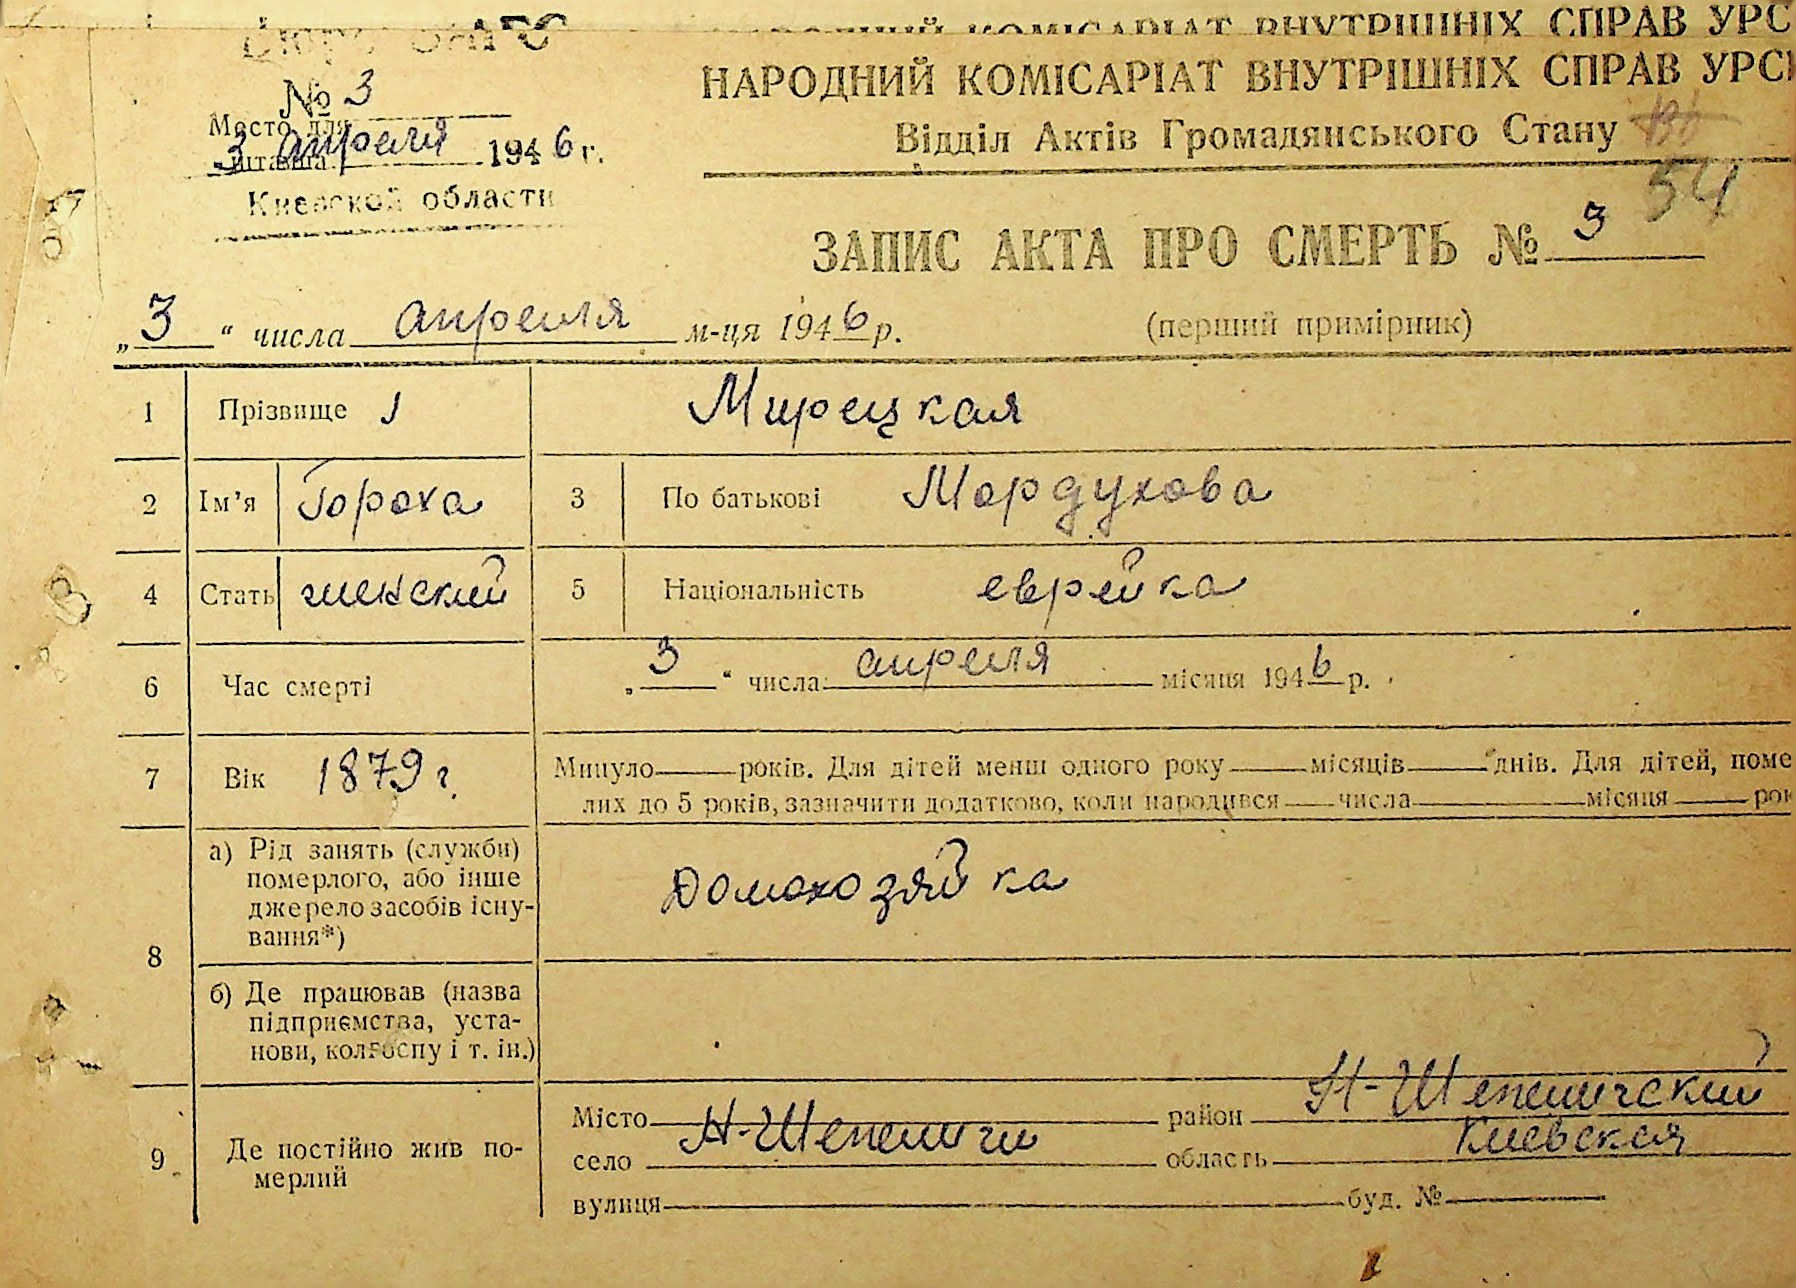 Бюро ЗАГС
НАРОДНИЙ КОМІСАРІАТ ВНУТРІШНІХ СПРАВ УРС
№ 3
НАРОДНИЙ КОМІСАРІАТ ВНУТРІШНІХ СПРАВ УРС
Место для
штампа
3 апреля 1946 г.
Відділ Актів Громадянського Стану
Киевской области
54
ЗАПИС АКТА ПРО СМЕРТЬ № 3
„3“ числа апреля м-ця 1946 р.
(перший примірник)
1 Прізвище Мирецкая
2 Ім’я Гороха 3 По батькові Мордухова
4 Стать женский 5 Національність еврейка
6 Час смерті „3“ числа апреля місяця 1946 р.
7 Вік 1879 г. Минуло ____ років. Для дітей менш одного року ____ місяців ____ днів. Для дітей, поме
лих до 5 років, зазначити додатково, коли народився ____ числа ____ місяця ____ рок
8 а) Рід занять (служби)
померлого, або інше
джерело засобів існу-
вання*)
Домохозяйка
б) Де працював (назва
підприємства, уста-
нови, колгоспу і т. ін.)
9 Де постійно жив по-
мерлий
Місто Н-Шепеличи район Н-Шепеличский
село ____ область Киевская
вулиця ____ буд. № ____